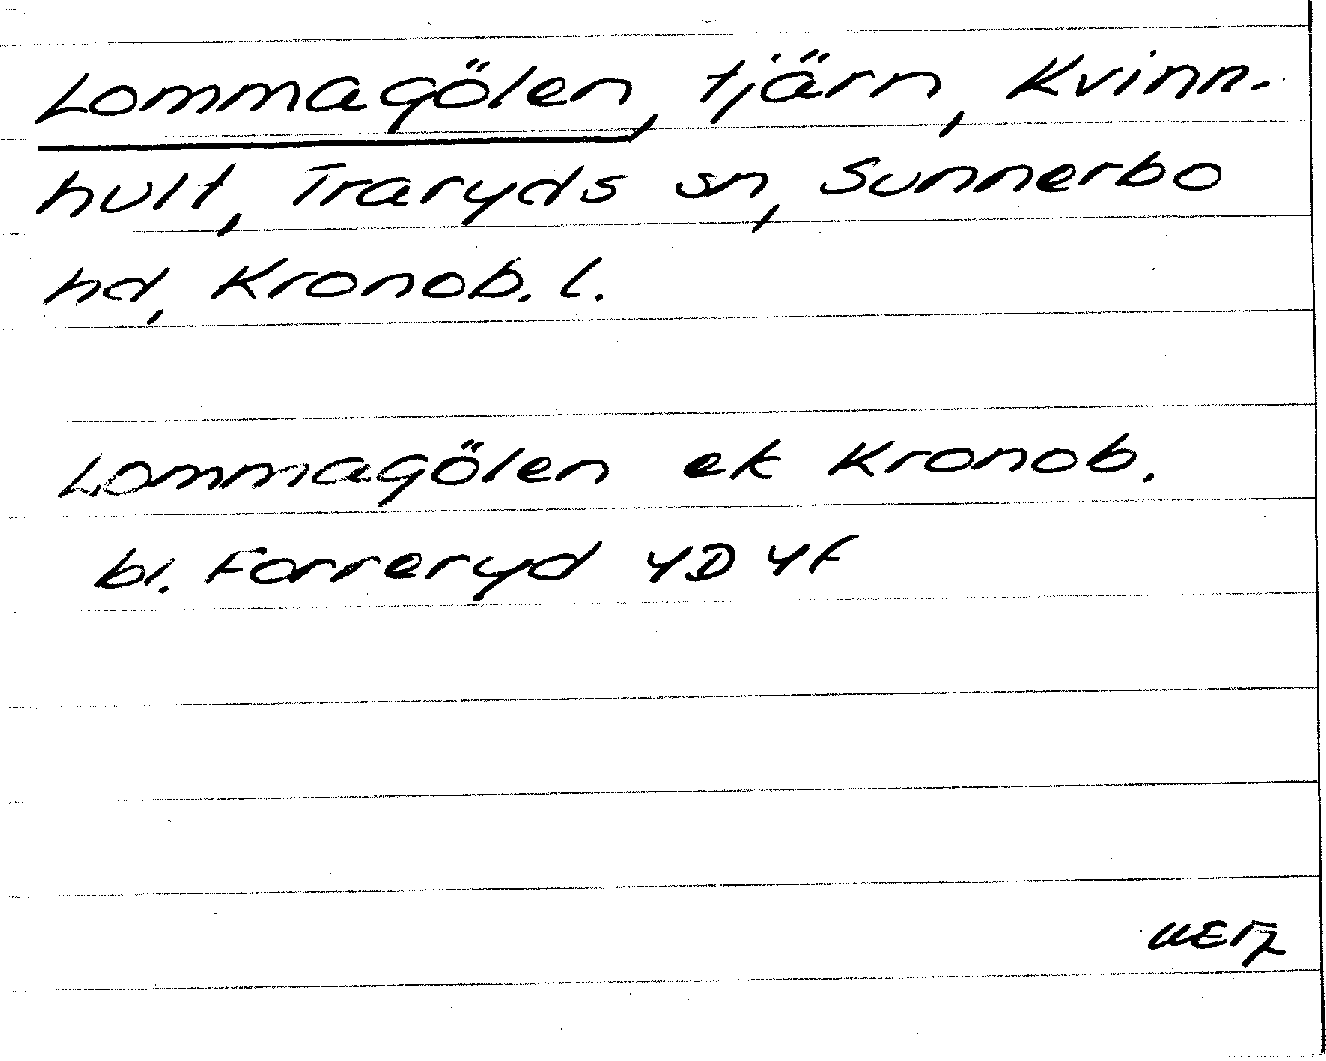 Lommagölen, tjärn, Kvinn-
hult, Traryds sn, Sunnerbo
hd, Kronob. l.
Lommagölen ek Kronob.
bl. Forreryd 4D 4f